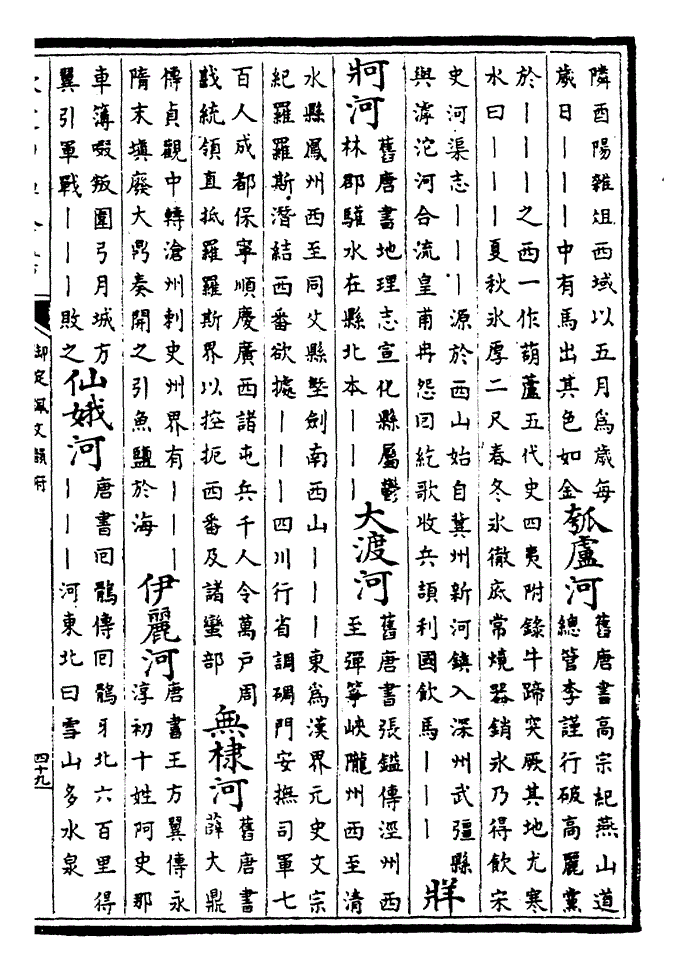 隣酉陽雜俎西域以五月爲歲每
歲日丨丨丨中有馬出其色如金
瓠盧河
舊唐書高宗紀燕山道
總管李謹行破高麗黨
於丨丨丨之西一作葫蘆五代史四夷附錄牛蹄突厥其地尤寒
水曰丨丨丨夏秋氷厚二尺春冬氷徹底常燒器銷氷乃得飲宋
史河渠志丨丨丨源於西山始自冀州新河鎮入深州武彊縣
與滹沱河合流皇甫冉怨回紇歌收兵頡利國飲馬丨丨丨
牂
牁河
舊唐書地理志宣化縣屬鬱
林郡驩水在縣北本丨丨丨
大渡河
舊唐書張鎰傳涇州西
至彈箏峽隴州西至清
水縣鳳州西至同父縣塹劍南西山丨丨丨東爲漢界元史文宗
紀羅羅斯潛結西番欲據丨丨丨四川行省調碉門安撫司軍七
百人成都保寧順慶廣西諸屯兵千人令萬戶周
戡統領直抵羅羅斯界以控扼西番及諸蠻部
無棣河
舊唐書
薛大鼎
傳貞觀中轉滄州刺史州界有丨丨丨
隋末塡廢大鼎奏開之引魚鹽於海
伊麗河
唐書王方翼傳永
淳初十姓阿史那
車簿啜叛圍弓月城方
翼引軍戰丨丨丨敗之
仙娥河
唐書回鶻傳回鶻牙北六百里得
丨丨丨河東北曰雪山多水泉
御定佩文韻府
四十九